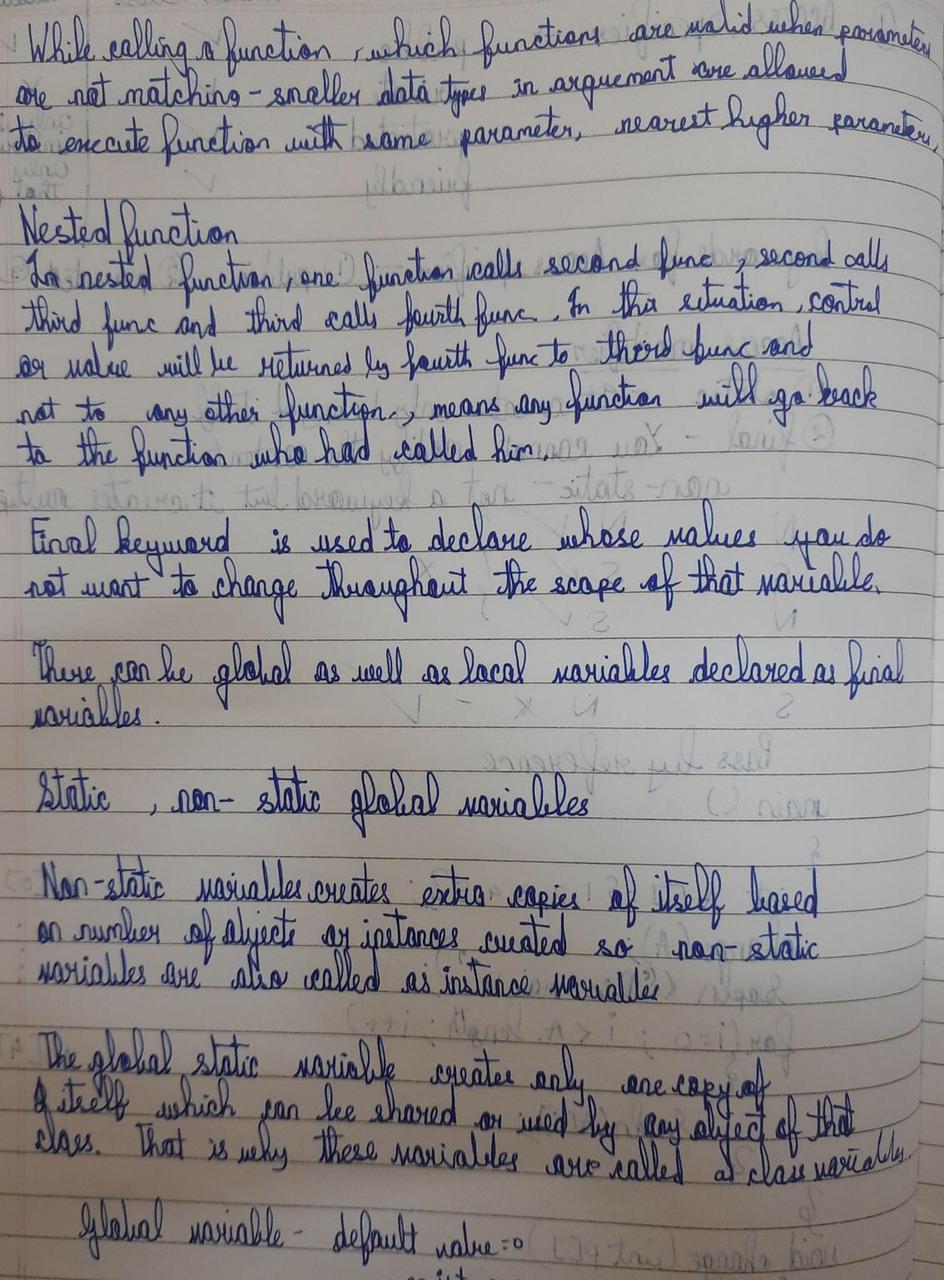 While calling a function, which functions are valid when parameters
are not matching - smaller data types in arguement are allowed
to execute function with same parameter, nearest higher parameter.
Nested function
In nested function, one function calls second func, second calls
third func and third calls fourth func. In this situation, control
or value will be returned by fourth func to third func and
not to any other function, means any function will go back
to the function who had called him.
Final keyword is used to declare whose values you do
not want to change throughout the scope of that variable.
There can be global as well as local variables declared as final
variables.
Static, non-static global variables
Non-static variables creates extra copies of itself based
on number of objects or instances created so non-static
variables are also called as instance variables
The global static variable creates only one copy of
itself which can be shared or used by any object of that
class. That is why these variables are called as class variables.
Global variable - default value = 0